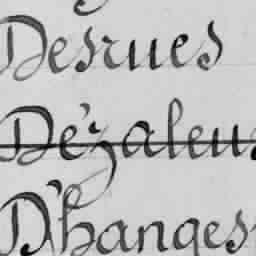 Desrues
Dézaleu
D'hanges